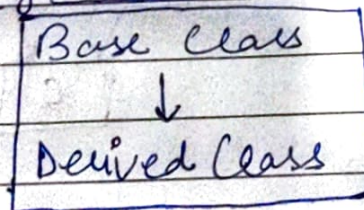 Base Class
↓
Derived Class